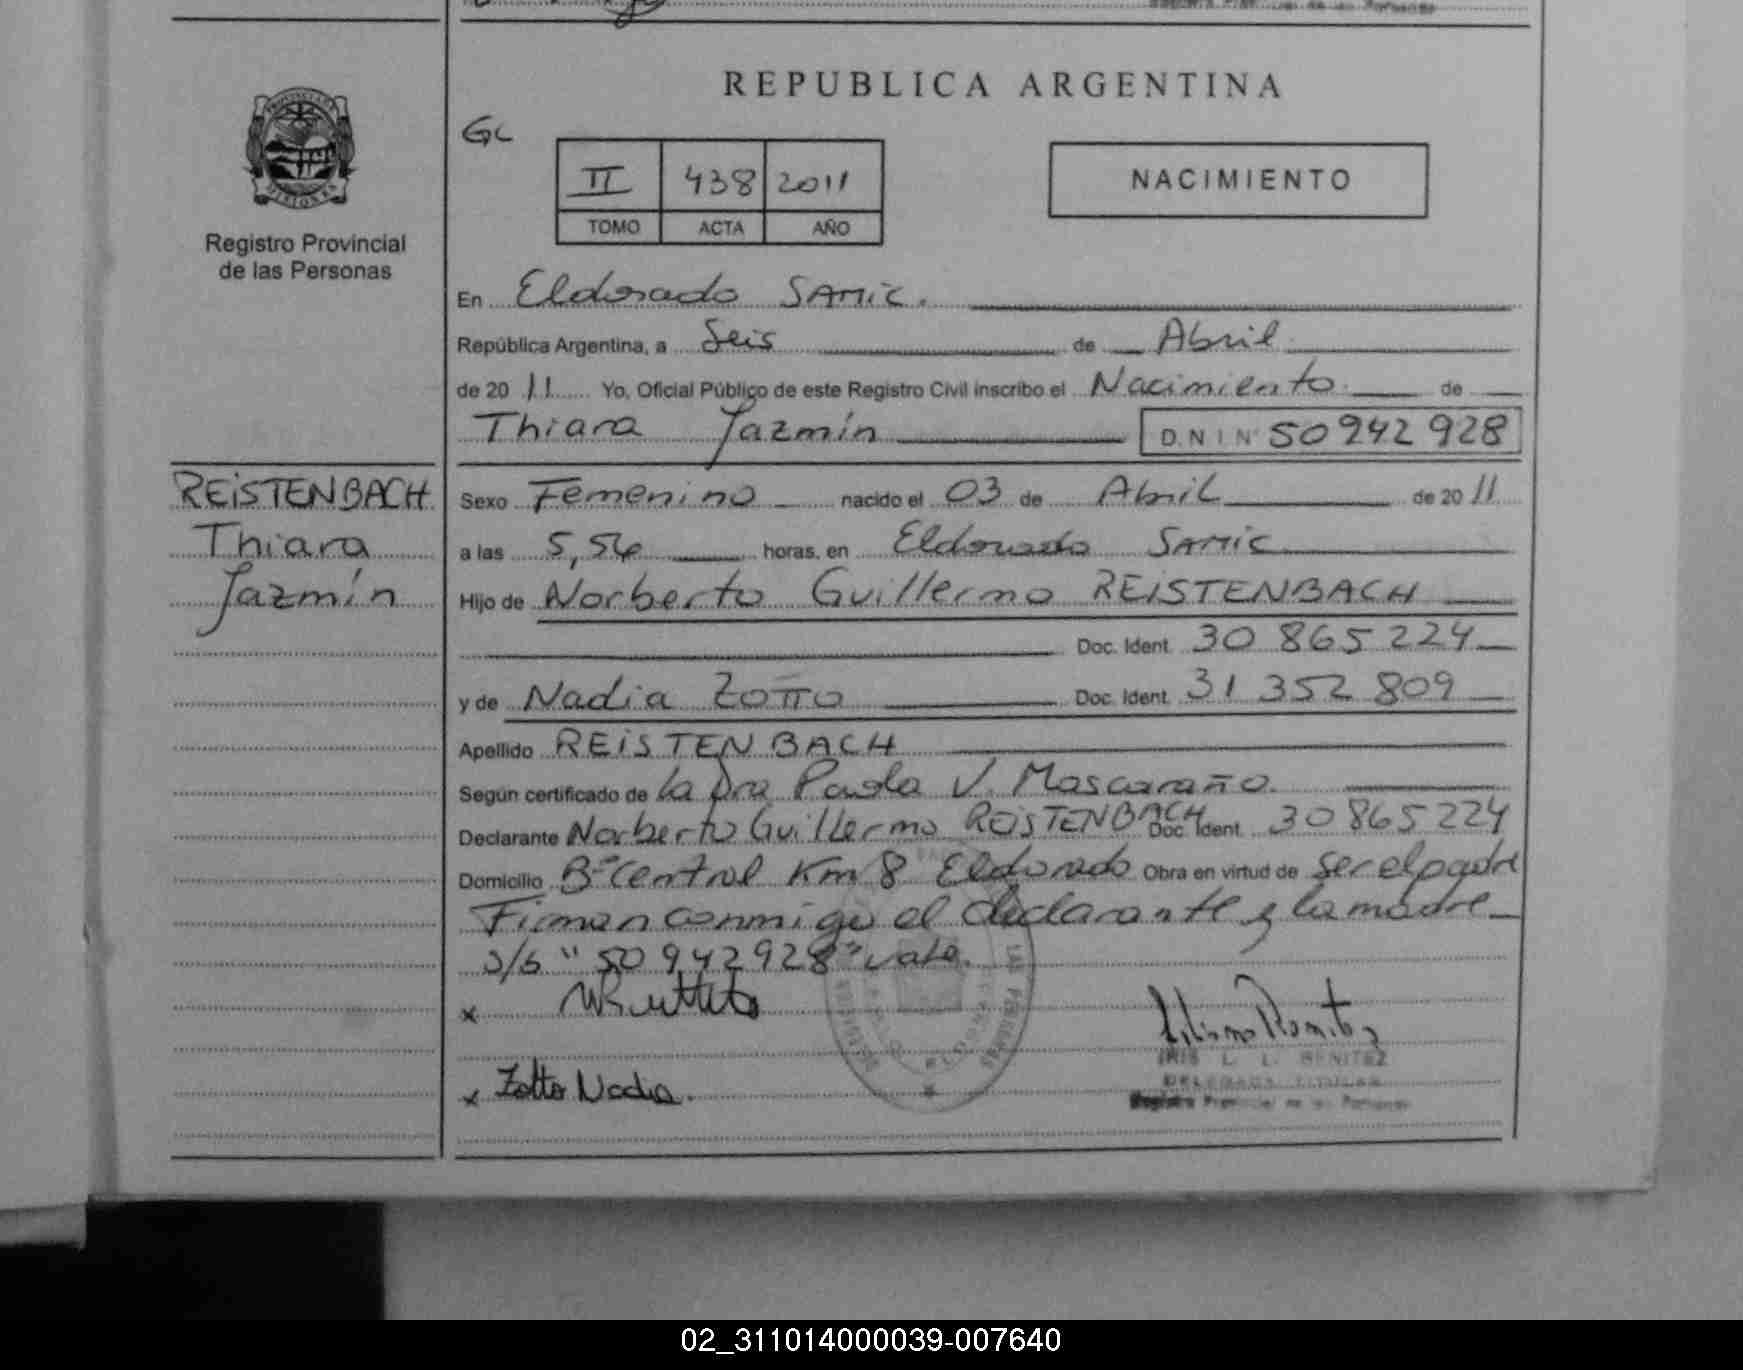 REPUBLICA ARGENTINA
GC
II 438 2011
TOMO ACTA AÑO
NACIMIENTO
Registro Provincial
de las Personas
REISTENBACH
Thiara
Jazmín
En Eldorado SAMIC.
República Argentina, a Seis de Abril
de 2011 Yo, Oficial Público de este Registro Civil inscribo el Nacimiento de
Thiara Jazmín D.N.I. N° 50942928
Sexo Femenino nacido el 03 de Abril de 2011
a las 5,54 horas, en Eldorado SAMIC
Hijo de Norberto Guillermo REISTENBACH
Doc. Ident. 30 865 224
y de Nadia ZOTTO Doc. Ident. 31 352 809
Apellido REISTENBACH
Según certificado de la Dra Paola V. Mascaraño.
Declarante Norberto Guillermo REISTENBACH Doc. Ident. 30865224
Domicilio B° Central Km 8 Eldorado Obra en virtud de Ser el padre
Firman conmigo el declarante y la madre
s/b "50942928" vale.
x
x Zotto Nadia.
IRIS L. L. BENITEZ
DELEGADA TITULAR
Registro Provincial de las Personas
02_311014000039-007640